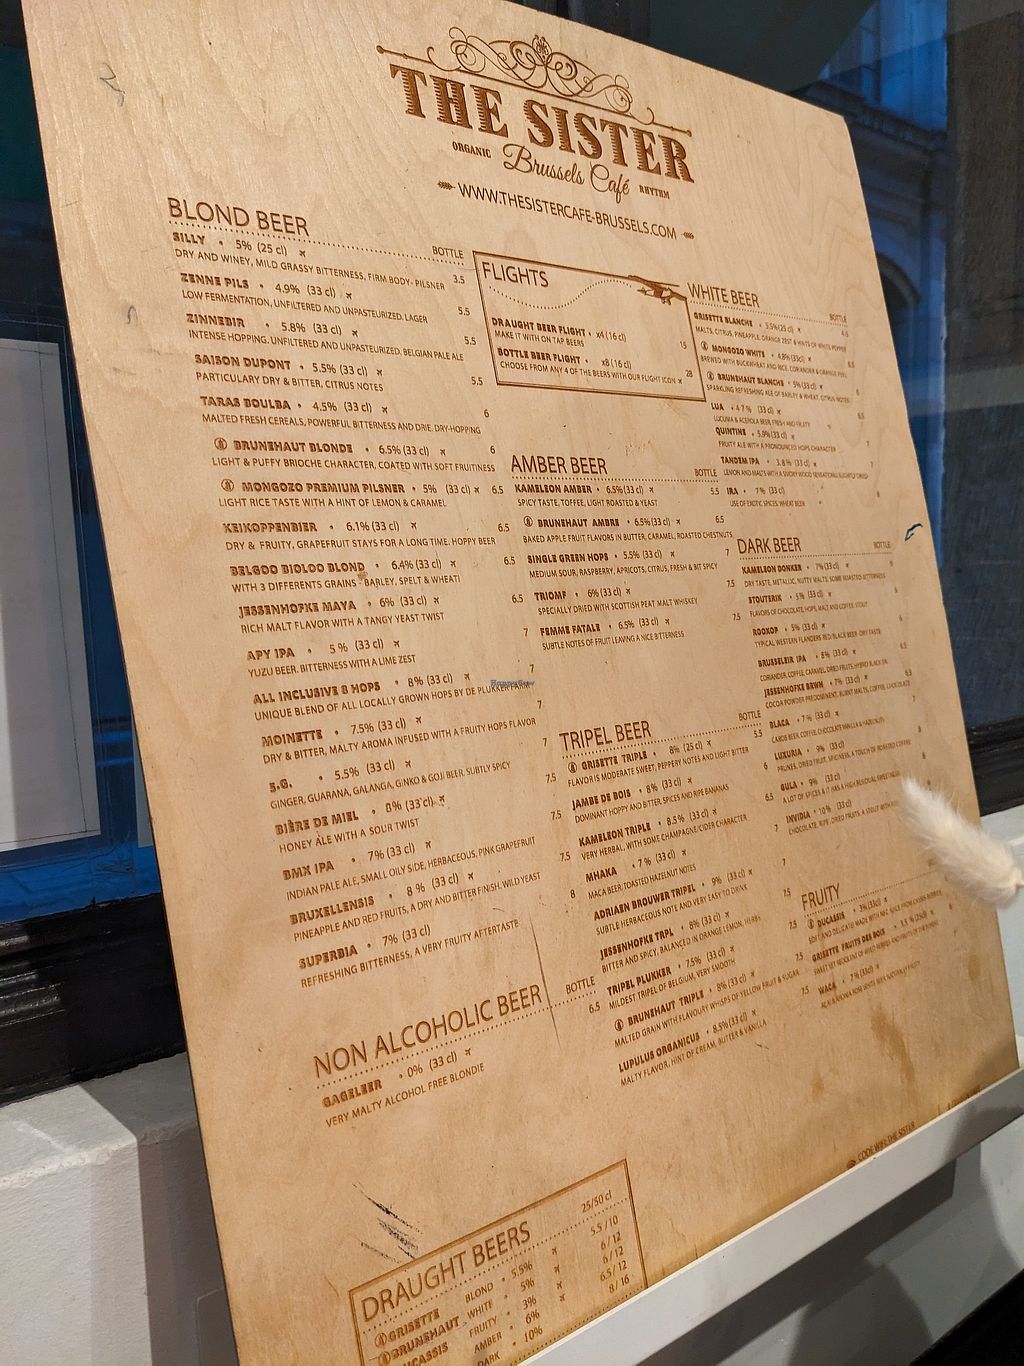 THE SISTER
ORGANIC Brussels Café RHYTHM
WWW.THESISTERCAFE-BRUSSELS.COM
BLOND BEER BOTTLE
SILLY • 5% (25 cl)
DRY AND WINEY, MILD GRASSY BITTERNESS, FIRM BODY- PILSNER 3.5
ZENNE PILS • 4.9% (33 cl)
LOW FERMENTATION, UNFILTERED AND UNPASTEURIZED, LAGER 5.5
ZINNEBIR • 5.8% (33 cl)
INTENSE HOPPING, UNFILTERED AND UNPASTEURIZED, BELGIAN PALE ALE 5.5
SAISON DUPONT • 5.5% (33 cl)
PARTICULARY DRY & BITTER, CITRUS NOTES 5.5
TARAS BOULBA • 4.5% (33 cl)
MALTED FRESH CEREALS, POWERFUL BITTERNESS AND DRIE, DRY-HOPPING 6
BRUNEHAUT BLONDE • 6.5% (33 cl) 6
LIGHT & PUFFY BRIOCHE CHARACTER, COATED WITH SOFT FRUITINESS
MONGOZO PREMIUM PILSNER • 5% (33 cl) 6.5
LIGHT RICE TASTE WITH A HINT OF LEMON & CARAMEL
KEIKOPPENBIER • 6.1% (33 cl) 6.5
DRY & FRUITY, GRAPEFRUIT STAYS FOR A LONG TIME. HOPPY BEER
BELGOO BIOLOO BLOND • 6.4% (33 cl) 6.5
WITH 3 DIFFERENTS GRAINS - BARLEY, SPELT & WHEAT!
JESSENHOFKE MAYA • 6% (33 cl) 6.5
RICH MALT FLAVOR WITH A TANGY YEAST TWIST
APY IPA • 5 % (33 cl) 7
YUZU BEER. BITTERNESS WITH A LIME ZEST
ALL INCLUSIVE 8 HOPS • 8% (33 cl) 7
UNIQUE BLEND OF ALL LOCALLY GROWN HOPS BY DE PLUKKER FARM
MOINETTE • 7.5% (33 cl) 7
DRY & BITTER, MALTY AROMA INFUSED WITH A FRUITY HOPS FLAVOR
S.G. • 5.5% (33 cl) 7
GINGER, GUARANA, GALANGA, GINKO & GOJI BEER, SUBTLY SPICY
BIÈRE DE MIEL • 8% (33 cl) 7.5
HONEY ALE WITH A SOUR TWIST
BMX IPA • 7% (33 cl) 7.5
INDIAN PALE ALE, SMALL OILY SIDE, HERBACEOUS, PINK GRAPEFRUIT
BRUXELLENSIS • 8 % (33 cl) 7.5
PINEAPPLE AND RED FRUITS, A DRY AND BITTER FINISH. WILD YEAST
SUPERBIA • 7% (33 cl) 8
REFRESHING BITTERNESS, A VERY FRUITY AFTERTASTE
NON ALCOHOLIC BEER BOTTLE
GAGELEER • 0% (33 cl) 6.5
VERY MALTY ALCOHOL FREE BLONDIE
FLIGHTS
DRAUGHT BEER FLIGHT • x4 (16 cl)
MAKE IT WITH ON TAP BEERS 15
BOTTLE BEER FLIGHT • x8 (16 cl)
CHOOSE FROM ANY 4 OF THE BEERS WITH OUR FLIGHT ICON 28
AMBER BEER BOTTLE
KAMELEON AMBER • 6.5% (33 cl) 5.5
SPICY TASTE, TOFFEE, LIGHT ROASTED & YEAST
BRUNEHAUT AMBRE • 6.5% (33 cl) 6.5
BAKED APPLE FRUIT FLAVORS IN BUTTER, CARAMEL, ROASTED CHESTNUTS
SINGLE GREEN HOPS • 5.5% (33 cl) 7
MEDIUM SOUR, RASPBERRY, APRICOTS, CITRUS, FRESH & BIT SPICY
TRIOMF • 6% (33 cl) 7.5
SPECIALLY DRIED WITH SCOTTISH PEAT MALT WHISKEY
FEMME FATALE • 6.5% (33 cl) 7.5
SUBTLE NOTES OF FRUIT LEAVING A NICE BITTERNESS
TRIPEL BEER BOTTLE
GRISETTE TRIPLE • 8% (25 cl) 5.5
FLAVOR IS MODERATE SWEET, PEPPERY NOTES AND LIGHT BITTER
JAMBE DE BOIS • 8% (33 cl) 6
DOMINANT HOPPY AND BITTER, SPICES AND RIPE BANANAS
KAMELEON TRIPLE • 8.5% (33 cl) 6.5
VERY HERBAL, WITH SOME CHAMPAGNE/CIDER CHARACTER
MHAKA • 7 % (33 cl) 7
MACA BEER, TOASTED HAZELNUT NOTES
ADRIAEN BROUWER TRIPEL • 9% (33 cl) 7
SUBTLE HERBACEOUS NOTE AND VERY EASY TO DRINK
JESSENHOFKE TRPL • 8% (33 cl) 7.5
BITTER AND SPICY, BALANCED IN ORANGE LEMON, HERBS
TRIPEL PLUKKER • 7.5% (33 cl) 7.5
MILDEST TRIPEL OF BELGIUM, VERY SMOOTH
BRUNEHAUT TRIPLE • 8% (33 cl) 7.5
MALTED GRAIN WITH FLAVOURY WHISPS OF YELLOW FRUIT & SUGAR
LUPULUS ORGANICUS • 8.5% (33 cl) 7.5
MALTY FLAVOR, HINT OF CREAM, BUTTER & VANILLA
WHITE BEER BOTTLE
GRISETTE BLANCHE • 5.5% (25 cl)
MALTS, CITRUS, PINEAPPLE, ORANGE ZEST & HINTS OF WHITE PEPPER
MONGOZO WHITE • 4.8% (33 cl)
BREWED WITH BUCKWHEAT AND RICE, CORIANDER & ORANGE PEEL
BRUNEHAUT BLANCHE • 5% (33 cl)
SPARKLING REFRESHING ALE OF BARLEY & WHEAT, CITRUS NOTES
LUA • 4.7 % (33 cl)
LUCUMA & ACEROLA BEER, FRESH AND FRUITY
QUINTINE • 5.9% (33 cl)
FRUITY ALE WITH A PRONOUNCED HOPS CHARACTER
TANDEM IPA • 3.8 % (33 cl)
LEMON AND MALTS WITH A SMOKY WOOD
IRA • 7% (33 cl)
USE OF EXOTIC SPICES, WHEAT BEER
DARK BEER BOTTLE
KAMELEON DONKER • 7% (33 cl)
DRY TASTE, METALLIC, NUTTY MALTS, SOME ROASTED BITTERNESS
STOUTERIK • 5% (33 cl)
FLAVORS OF CHOCOLATE, HOPS, MALT AND COFFEE, STOUT
ROOKOP • 5% (33 cl)
TYPICAL WESTERN FLANDERS RED/BLACK BEER - DRY TASTE
BRUSSELEIR IPA • 8% (33 cl)
CORIANDER, COFFEE, CARAMEL, DRIED FRUITS, HYBRID BLACK IPA
JESSENHOFKE BRWN • 7% (33 cl)
COCOA POWDER PREDOMINENT, BURNT MALTS, COFFEE, CHOCOLATE
BLACA • 7 % (33 cl)
CAROB BEER, COFFEE, CHOCOLATE VANILLA & HAZELNUTS
LUXURIA • 9% (33 cl)
PRUNES, DRIED FRUIT, SPICINESS, A TOUCH OF ROASTED COFFEE
GULA • 9% (33 cl)
A LOT OF SPICES & IT HAS A HIGH RESIDUAL SWEETNESS
INVIDIA • 10% (33 cl)
CHOCOLATE, RIPE, DRIED FRUITS, A STOUT WITH
FRUITY
DUCASSIS • 3% (33cl)
SOFT AND DELICATE! MADE WITH
GRISETTE FRUITS DES BOIS • 3.5 % (25cl)
WACA • 7% (33cl)
CODEWIFI: THE SISTER
DRAUGHT BEERS 25/50 cl
GRISETTE BLOND • 5.5% 5.5 / 10
BRUNEHAUT WHITE • 5% 6 / 12
DUCASSIS FRUITY • 3% 6 / 12
AMBER • 6% 6.5 / 12
DARK • 10% 8 / 16